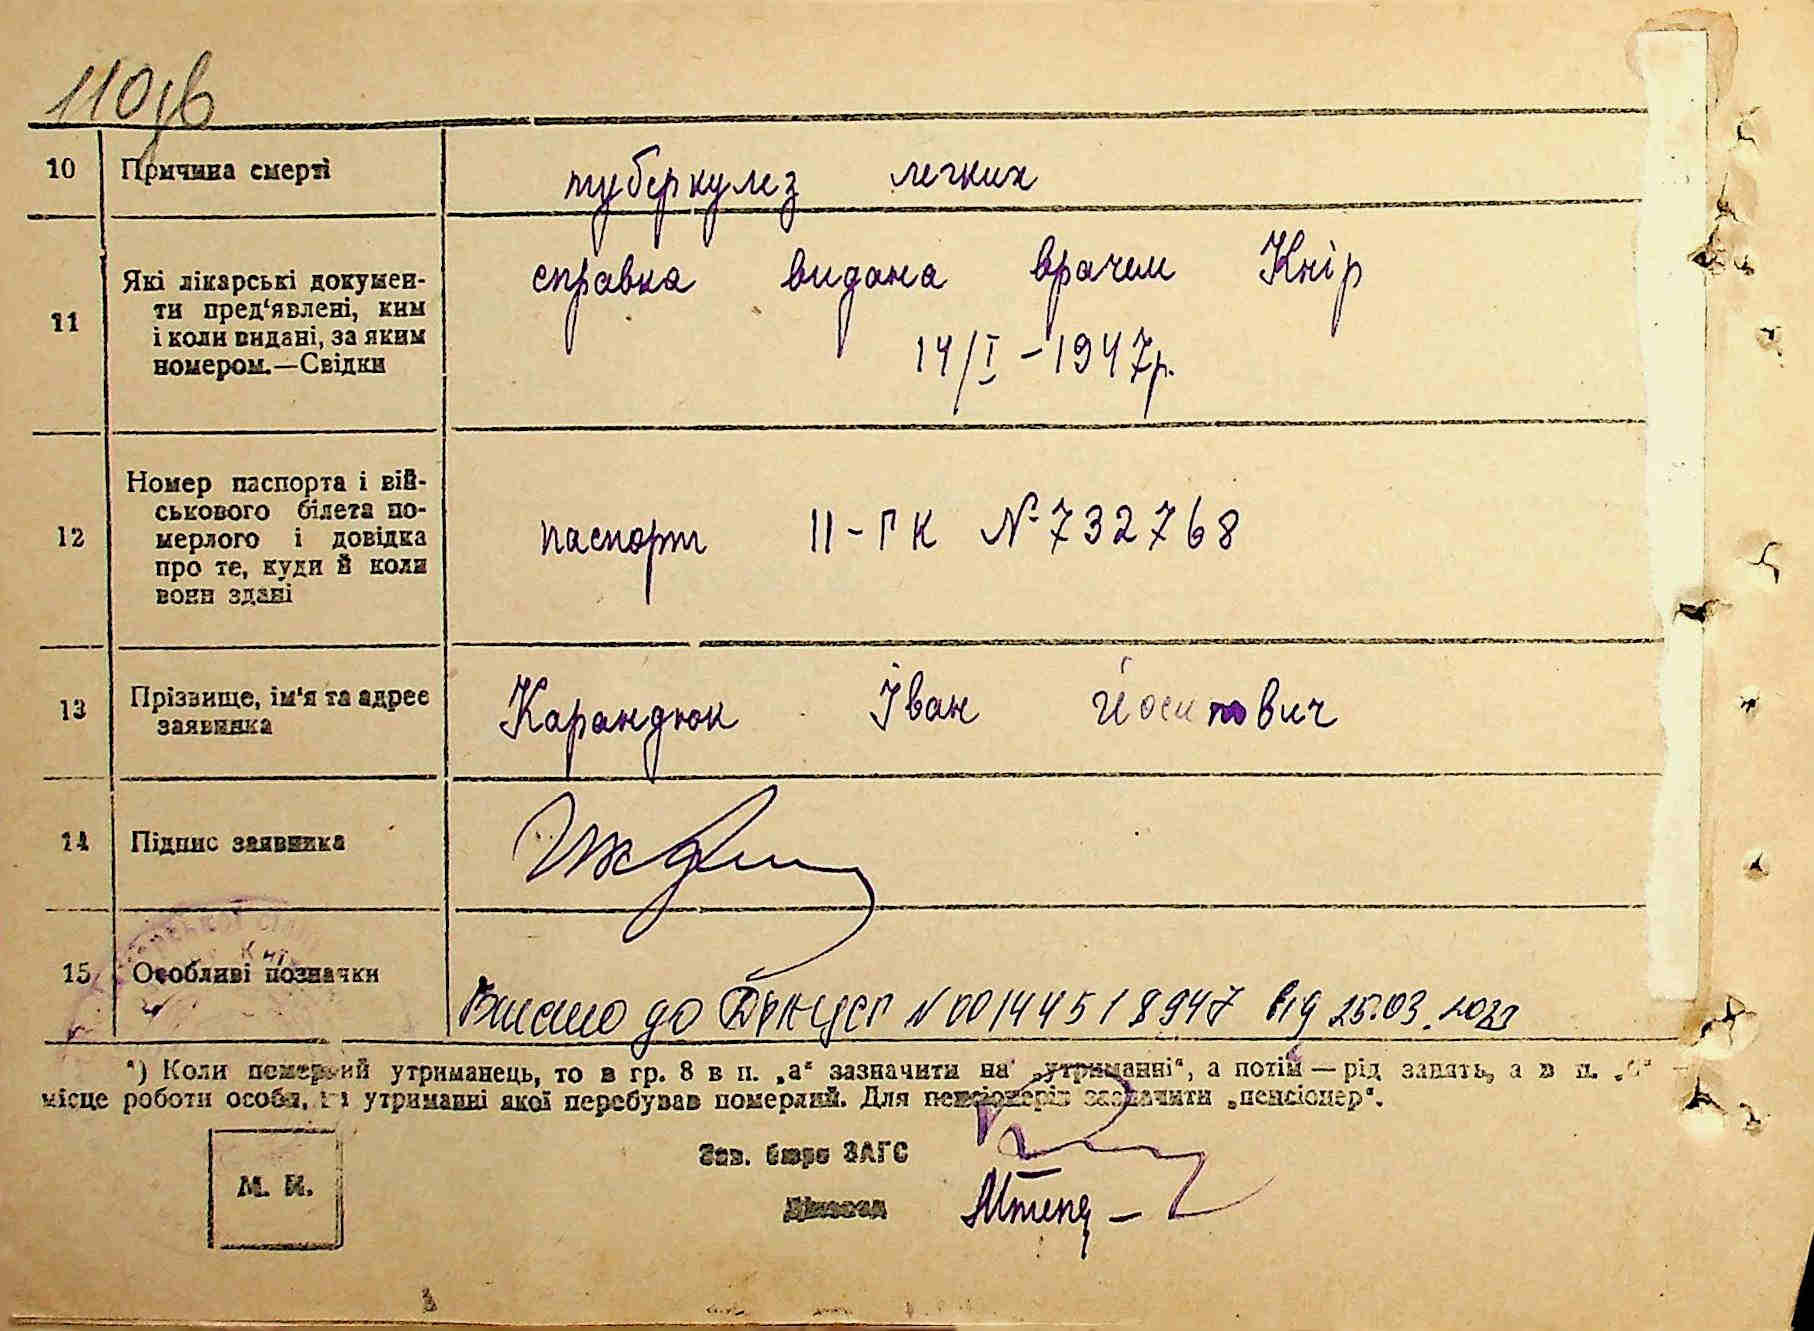 110зв
10 Причина смерті туберкулез легких
11 Які лікарські докумен-
ти пред'явлені, ким
і коли видані, за яким
номером.—Свідки
справка видана врачем Кнір
14/I - 1947р.
12 Номер паспорта і вій-
ськового білета по-
мерлого і довідка
про те, куди й коли
вони здані
паспорт II-ГК № 732768
13 Прізвище, ім'я та адрес
заявника
Карандюк Іван Йосипович
14 Підпис заявника
15 Особливі позначки
Внесено до ДРАЦСГ N 00144518947 від 25.03.2023
*) Коли померлий утриманець, то в гр. 8 в п. „а“ зазначити на „утриманні“, а потім — рід занять, а в п. „б“ —
місце роботи особи, на утриманні якої перебував померлий. Для пенсіонерів зазначити „пенсіонер“.
Зав. бюро ЗАГС
Діловод
М. П.